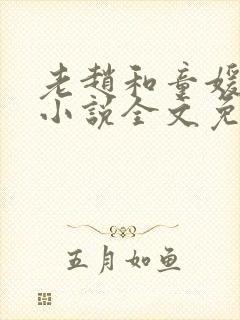 老赵和童媛
小説全文免
五月如鱼